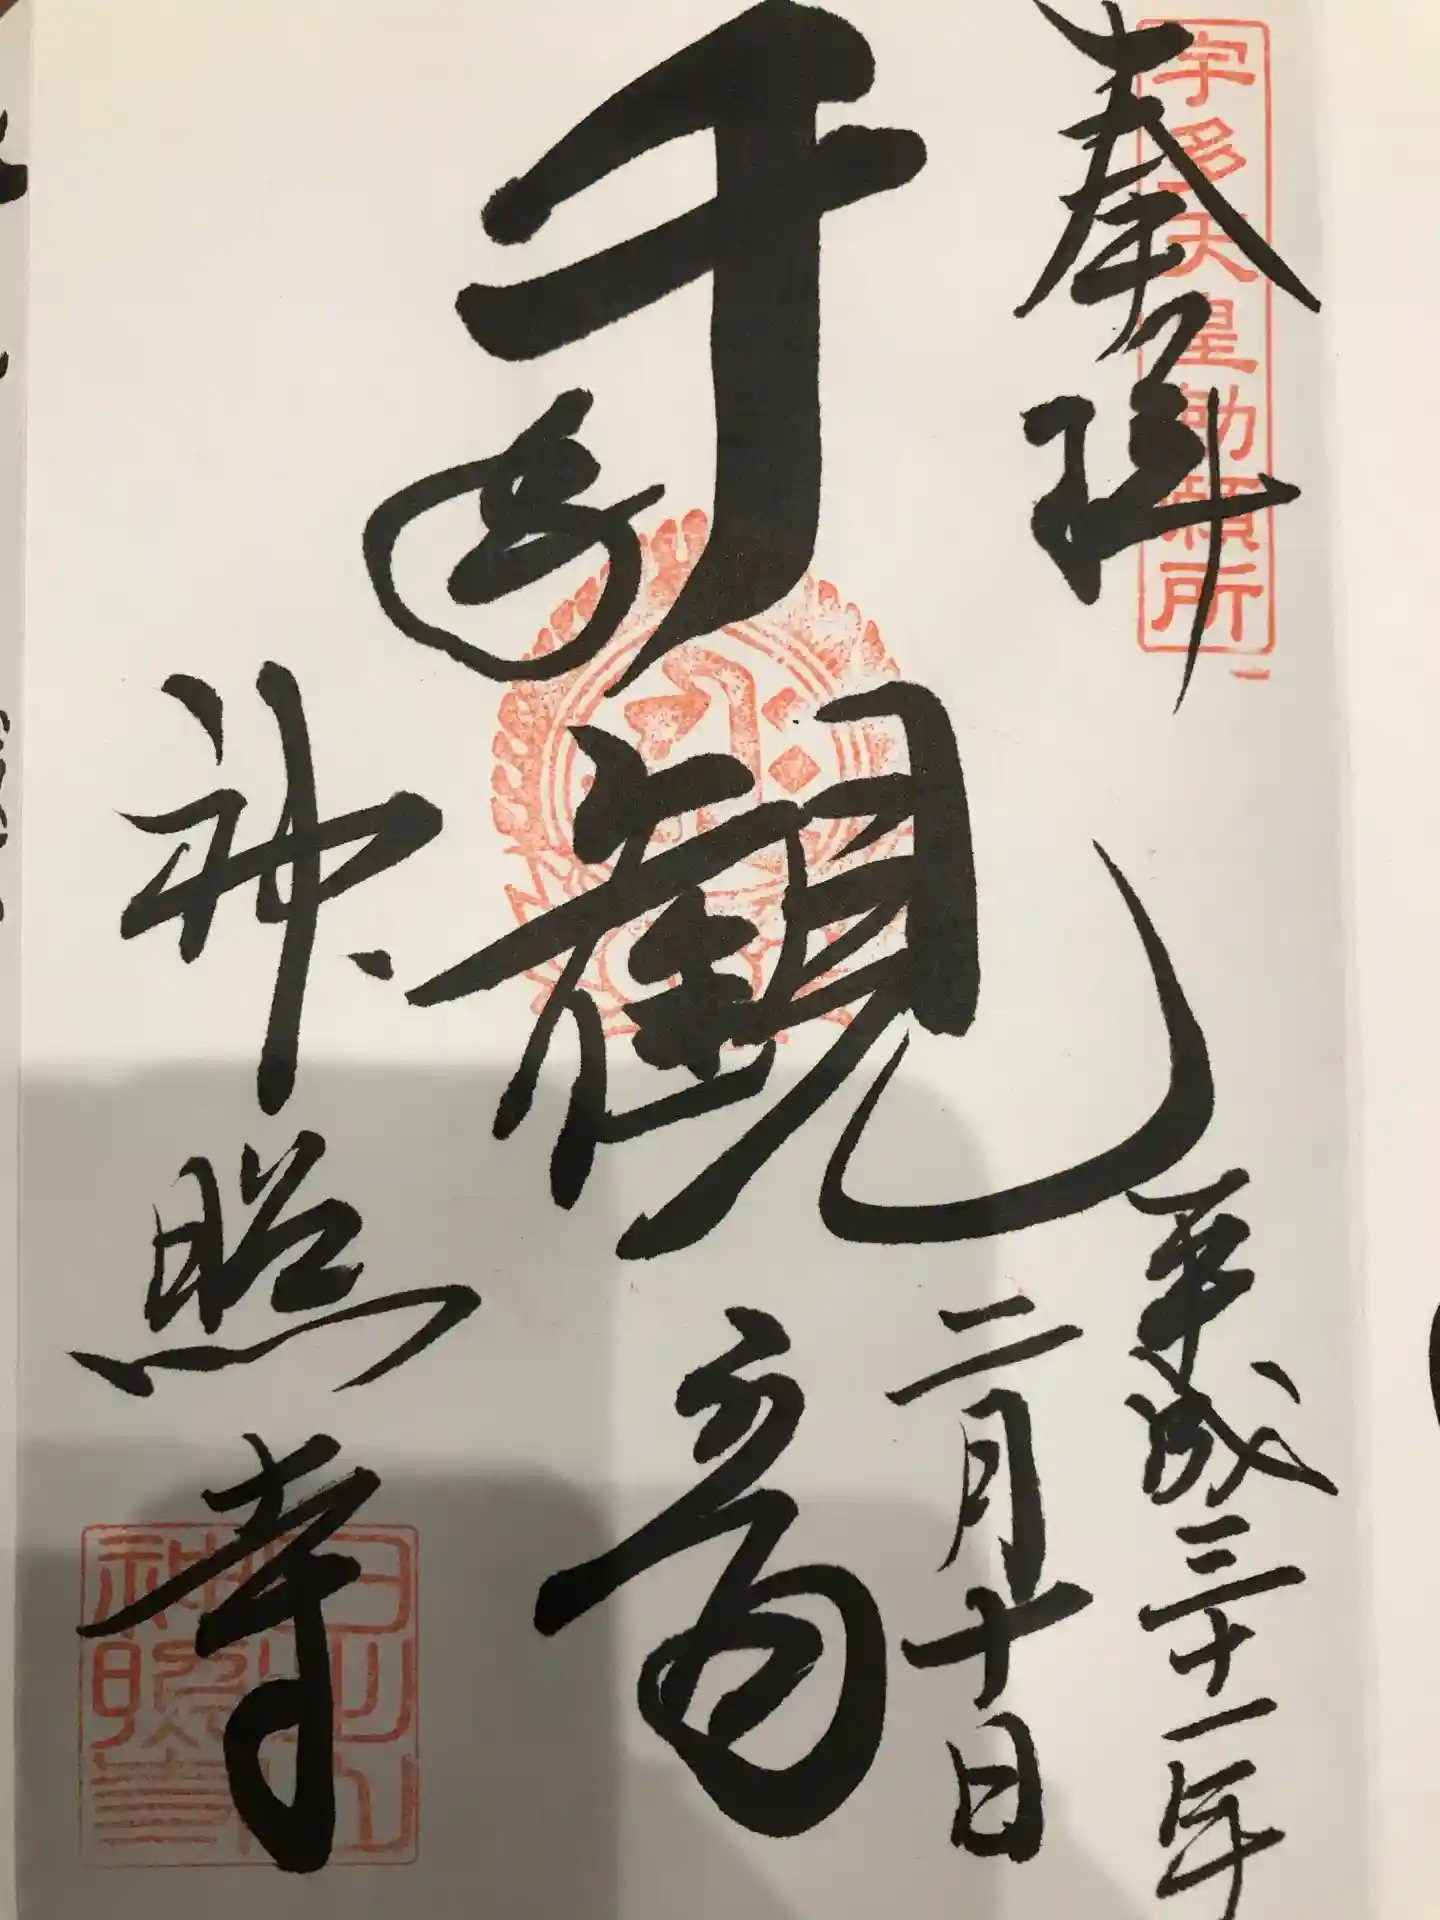 宇多天皇勅願所
奉拝
平成三十一年
二月十日
千手観音
神照寺
日出山
神照寺